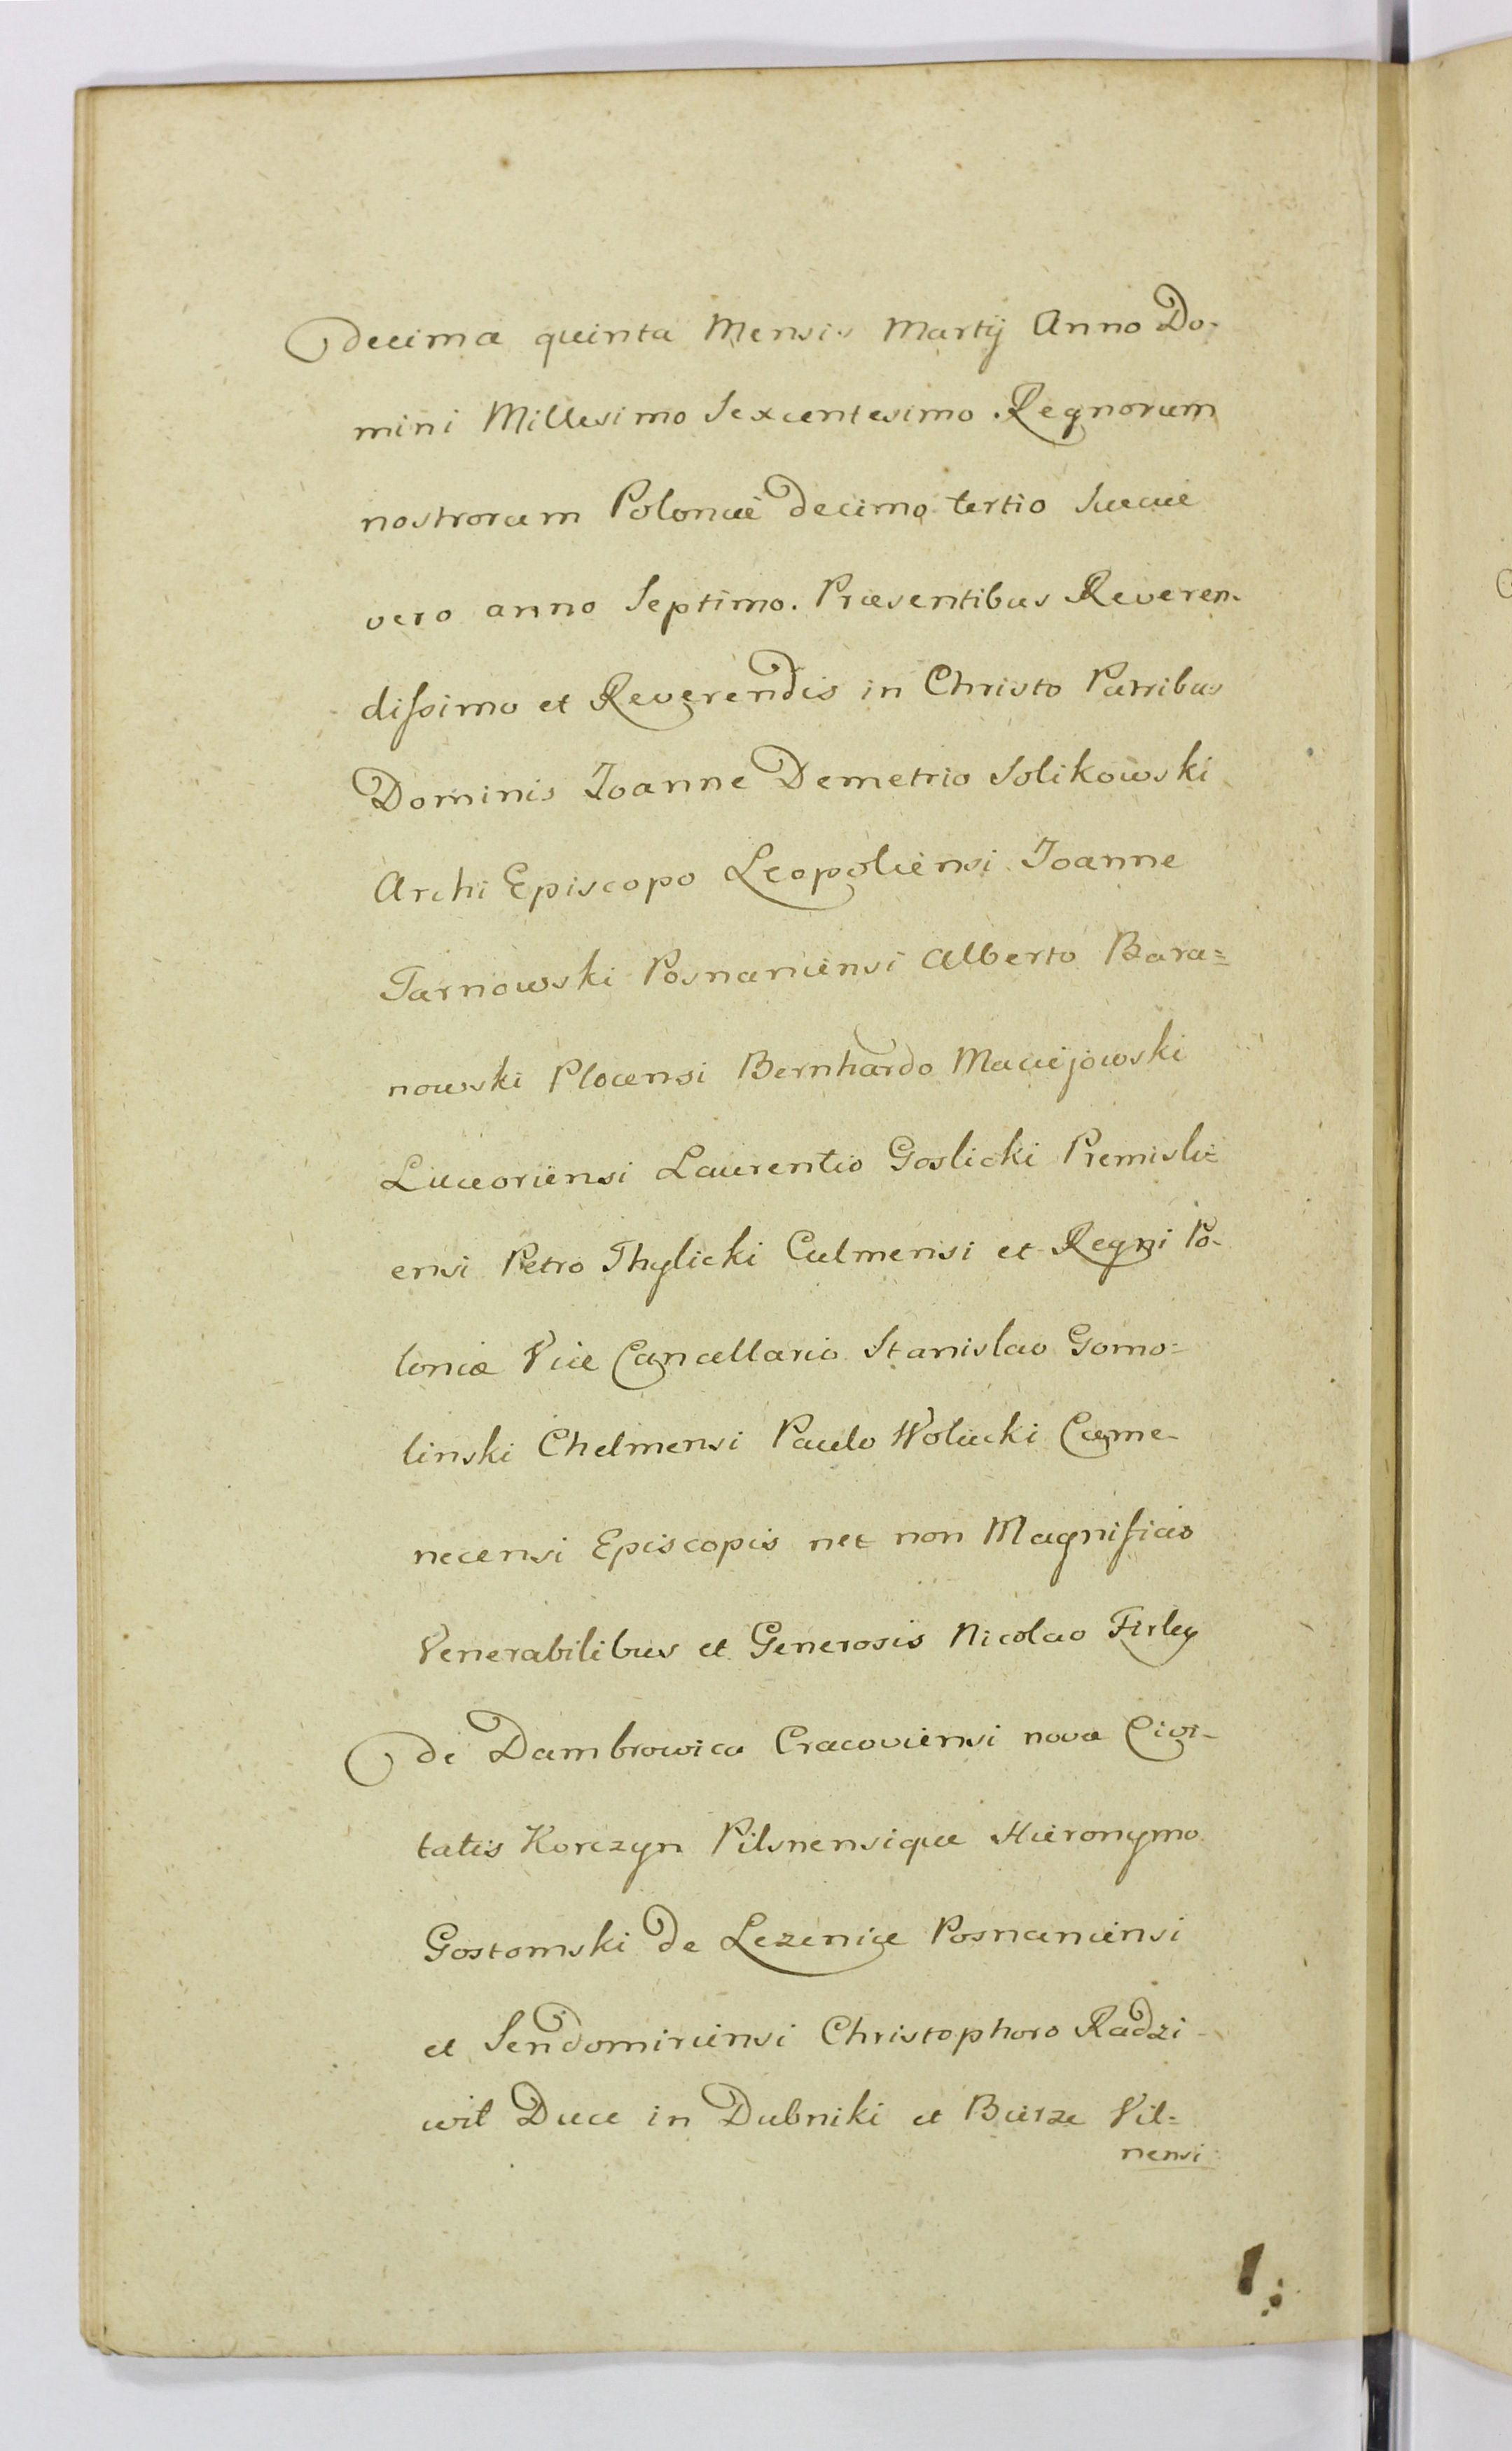 decima quinta Mensis Martij Anno Do-
mini Millesimo Sexcentesimo. Regnorum
nostrorum Poloniæ decimo tertio Sueciæ
vero anno Septimo. Præsentibus Reveren-
dissimo et Reverendis in Christo Patribus
Dominis Joanne Demetrio Solikowski
Archi Episcopo Leopoliensi Joanne
Tarnowski Posnaniensi Alberto Bara=
nowski Plocensi Bernhardo Maciejowski
Luceoriensi Laurentio Goslicki Premisli=
ensi Petro Thylicki Culmensi et Regni Po-
loniæ Vice Cancellario Stanislao Gomo=
linski Chelmensi Paulo Wolucki Came-
necensi Episcopis nec non Magnificis
Venerabilibus et Generosis Nicolao Firley
de Dambrowica Cracoviensi novæ Civi-
tatis Korczyn Pilsnensique Hieronymo
Gostomski de Lezenice Posnaniensi
et Sendomiriensi Christophoro Radzi-
wil Duce in Dubniki et Bierze Vil=
nensi